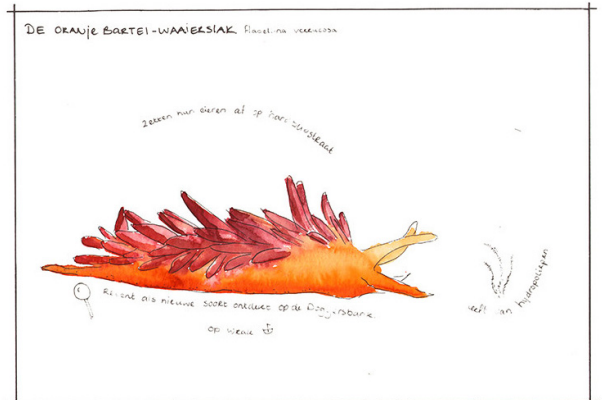 DE ORANJE BARTEL-WAAIERSLAK Flabellina verrucosa
Zetten hun eieren af op hard substraat
Recent als nieuwe soort ontdekt op de Doggersbank
op wrak
leeft van hydropoliepen